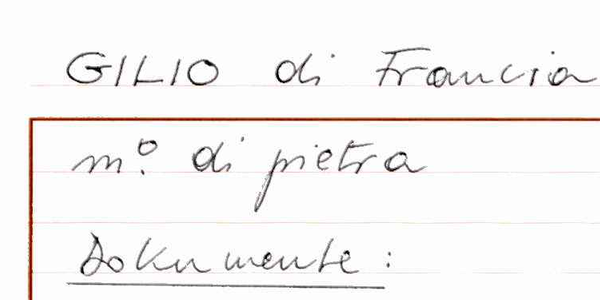 GILIO di Francia
m.º di pietra
Dokumente: